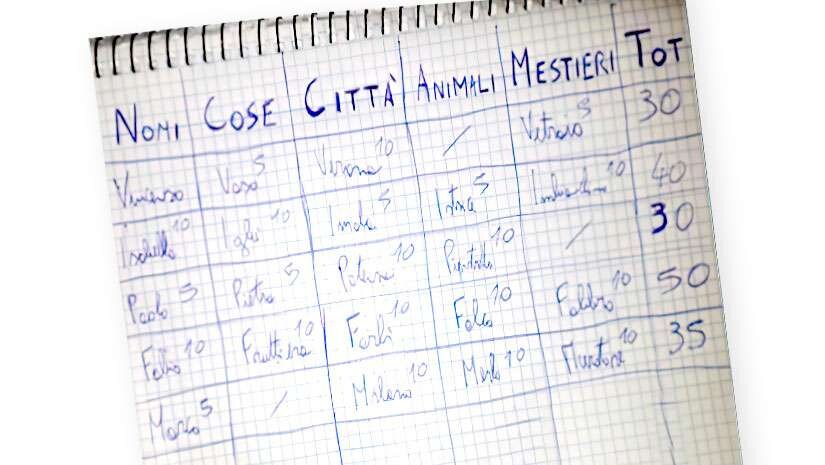 NOMI COSE CITTÀ ANIMALI MESTIERI TOT
Vincenzo Vaso 5 Verona 10 / Vetraio 5 30
Isabella 10 Igloo 10 Imola 5 Istrice 5 Imbianchino 10 40
Paolo 5 Pietra 5 Potenza 10 / 30
Fabio 10 Fruttiera 10 Forlì 10 Falco 10 Fabbro 10 50
Marco 5 / Milano 10 Merlo 10 Muratore 10 35